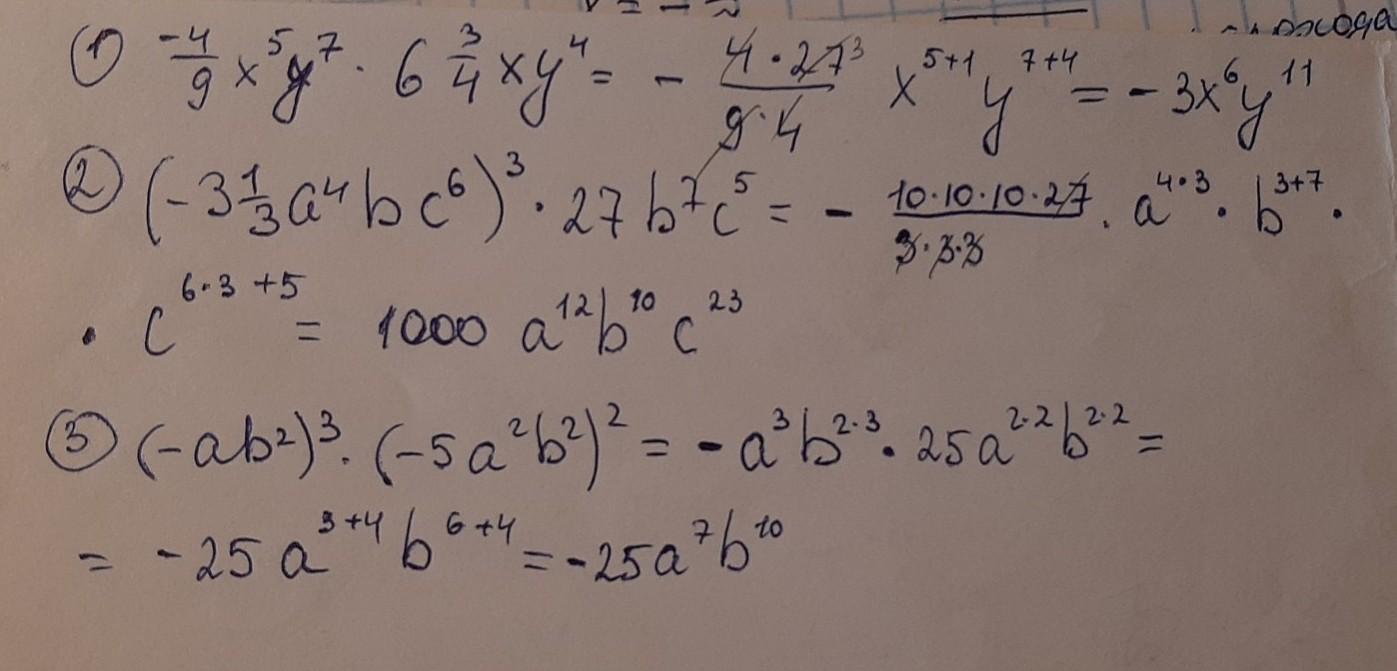 ① -4/9 x⁵y⁷ · 6 3/4 xy⁴ = - 4·27³/9·4 x⁵⁺¹ y⁷⁺⁴ = -3x⁶y¹¹
② (-3 1/3 a⁴bc⁶)³ · 27b⁷c⁵ = - 10·10·10·27/3·3·3 · a⁴·³ · b³⁺⁷ ·
· c⁶·³⁺⁵ = 1000 a¹²b¹⁰c²³
③ (-ab²)³ · (-5a²b²)² = -a³b²·³ · 25a²·²b²·² =
= -25a³⁺⁴b⁶⁺⁴ = -25a⁷b¹⁰